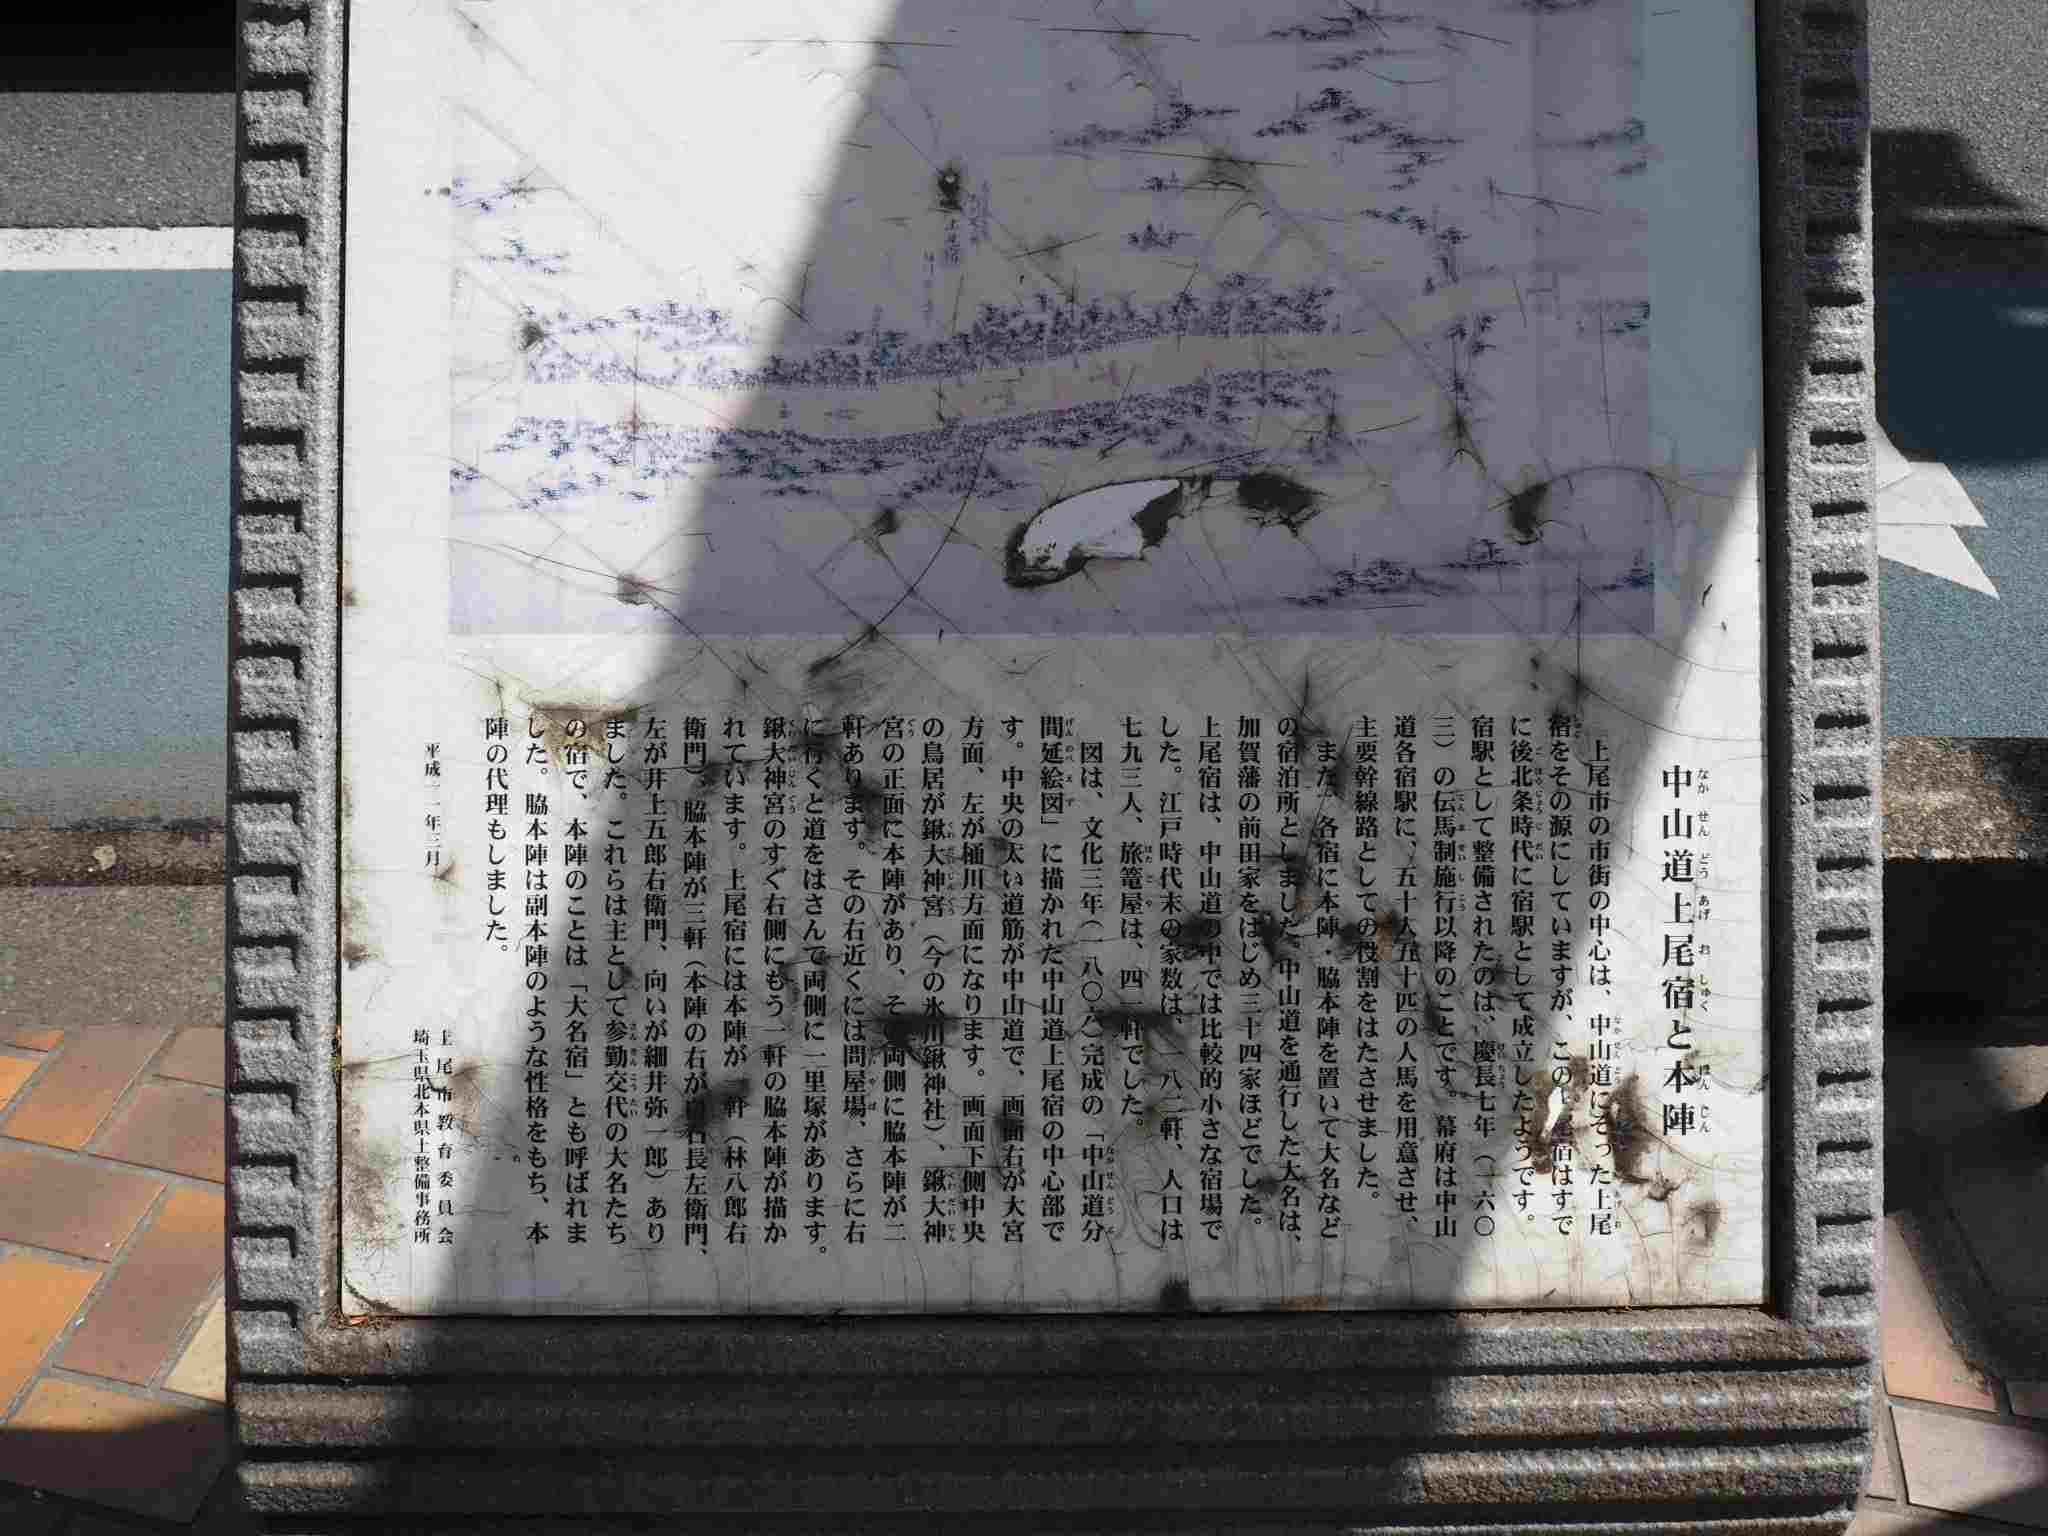 中山道上尾宿と本陣
上尾市の市街の中心は、中山道にそった上尾
宿をその源にしていますが、この上尾宿はすで
に後北条時代に宿駅として成立したようです。
宿駅として整備されたのは、慶長七年（一六〇
三）の伝馬制施行以降のことです。幕府は中山
道各宿駅に、五十人五十匹の人馬を用意させ、
主要幹線路としての役割をはたさせました。
また、各宿に本陣・脇本陣を置いて大名など
の宿泊所としました。中山道を通行した大名は、
加賀藩の前田家をはじめ三十四家ほどでした。
上尾宿は、中山道の中では比較的小さな宿場で
した。江戸時代末の家数は、一八二軒、人口は
七九三人、旅篭屋は、四一軒でした。
図は、文化三年（一八〇六）完成の「中山道分
間延絵図」に描かれた中山道上尾宿の中心部で
す。中央の太い道筋が中山道で、画面右が大宮
方面、左が桶川方面になります。画面下側中央
の鳥居が鍬大神宮（今の氷川鍬神社）、鍬大神
宮の正面に本陣があり、その両側に脇本陣が二
軒あります。その右近くには問屋場、さらに右
に行くと道をはさんで両側に一里塚があります。
鍬大神宮のすぐ右側にもう一軒の脇本陣が描か
れています。上尾宿には本陣が一軒（林八郎右
衛門）、脇本陣が三軒（本陣の右が白石長左衛門、
左が井上五郎右衛門、向いが細井弥一郎）あり
ました。これらは主として参勤交代の大名たち
の宿で、本陣のことは「大名宿」とも呼ばれま
した。脇本陣は副本陣のような性格をもち、本
陣の代理もしました。
平成一一年三月
上尾市教育委員会
埼玉県北本県土整備事務所